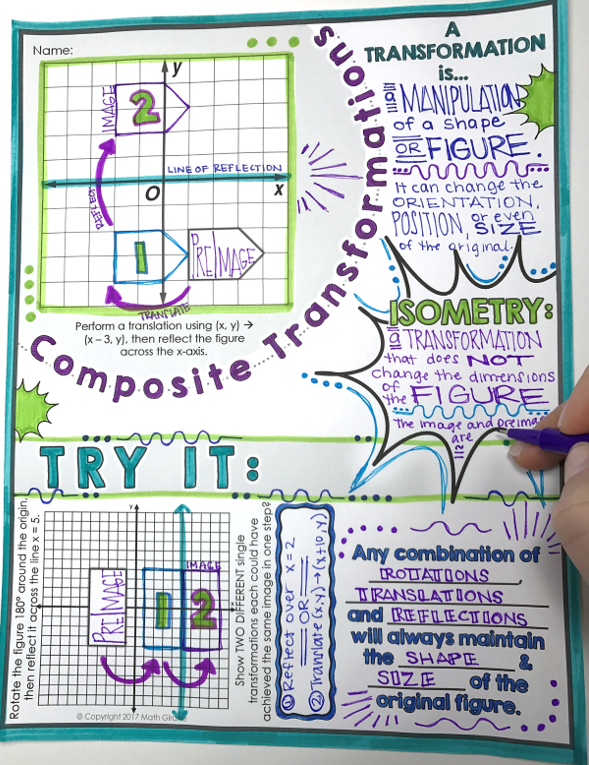 Name:
IMAGE
2
y
LINE OF REFLECTION
x
O
REFLECT
1
PREIMAGE
TRANSLATE
Perform a translation using (x, y) →
(x – 3, y), then reflect the figure
across the x-axis.
Composite Transformations
A
TRANSFORMATION
is...
a MANIPULATION
of a shape
OR FIGURE.
It can change the
ORIENTATION,
POSITION, or even
SIZE
of the original.
ISOMETRY:
a TRANSFORMATION
that does NOT
change the dimensions
of the FIGURE
the image and preimage
are
TRY IT:
Rotate the figure 180° around the origin,
then reflect it across the line x = 5.
y
PREIMAGE
1
IMAGE
2
Show TWO DIFFERENT single
transformations each could have
achieved the same image in one step?
① Reflect over x = 2
OR
② Translate (x, y) → (x+10, y)
Any combination of
ROTATIONS,
TRANSLATIONS
and REFLECTIONS
will always maintain
the SHAPE &
SIZE of the
original figure.
© Copyright 2017 Math Giraffe